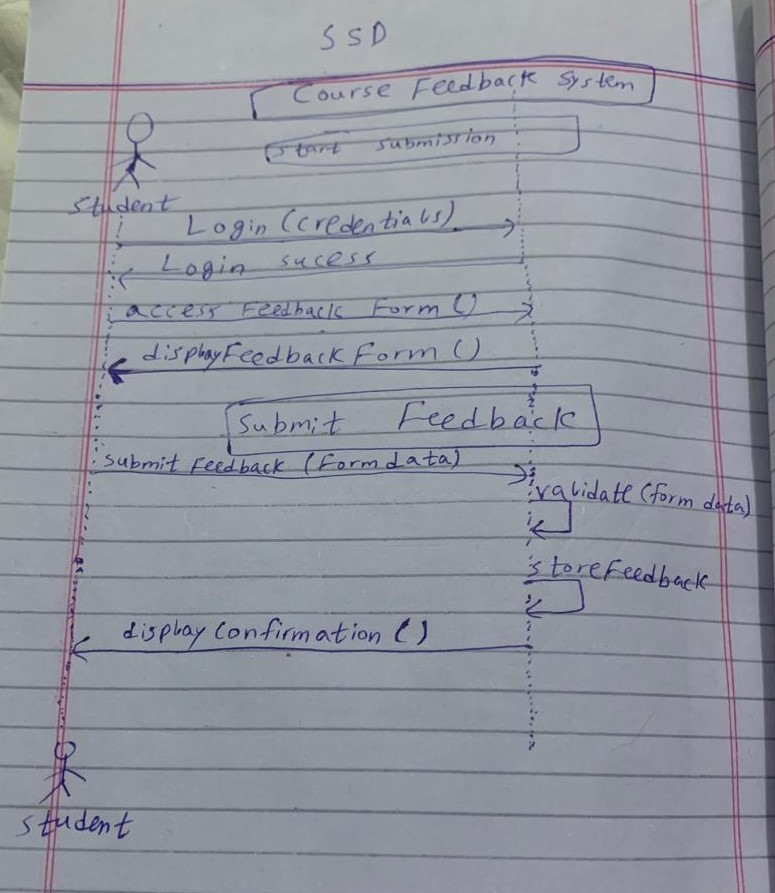 SSD
Course Feedback System
Start submission
student
Login (credentials)
Login sucess
access Feedback Form ()
displayFeedback Form ()
Submit Feedback
submit Feedback (Formdata)
validate (form data)
storeFeedback
display Confirmation ()
student